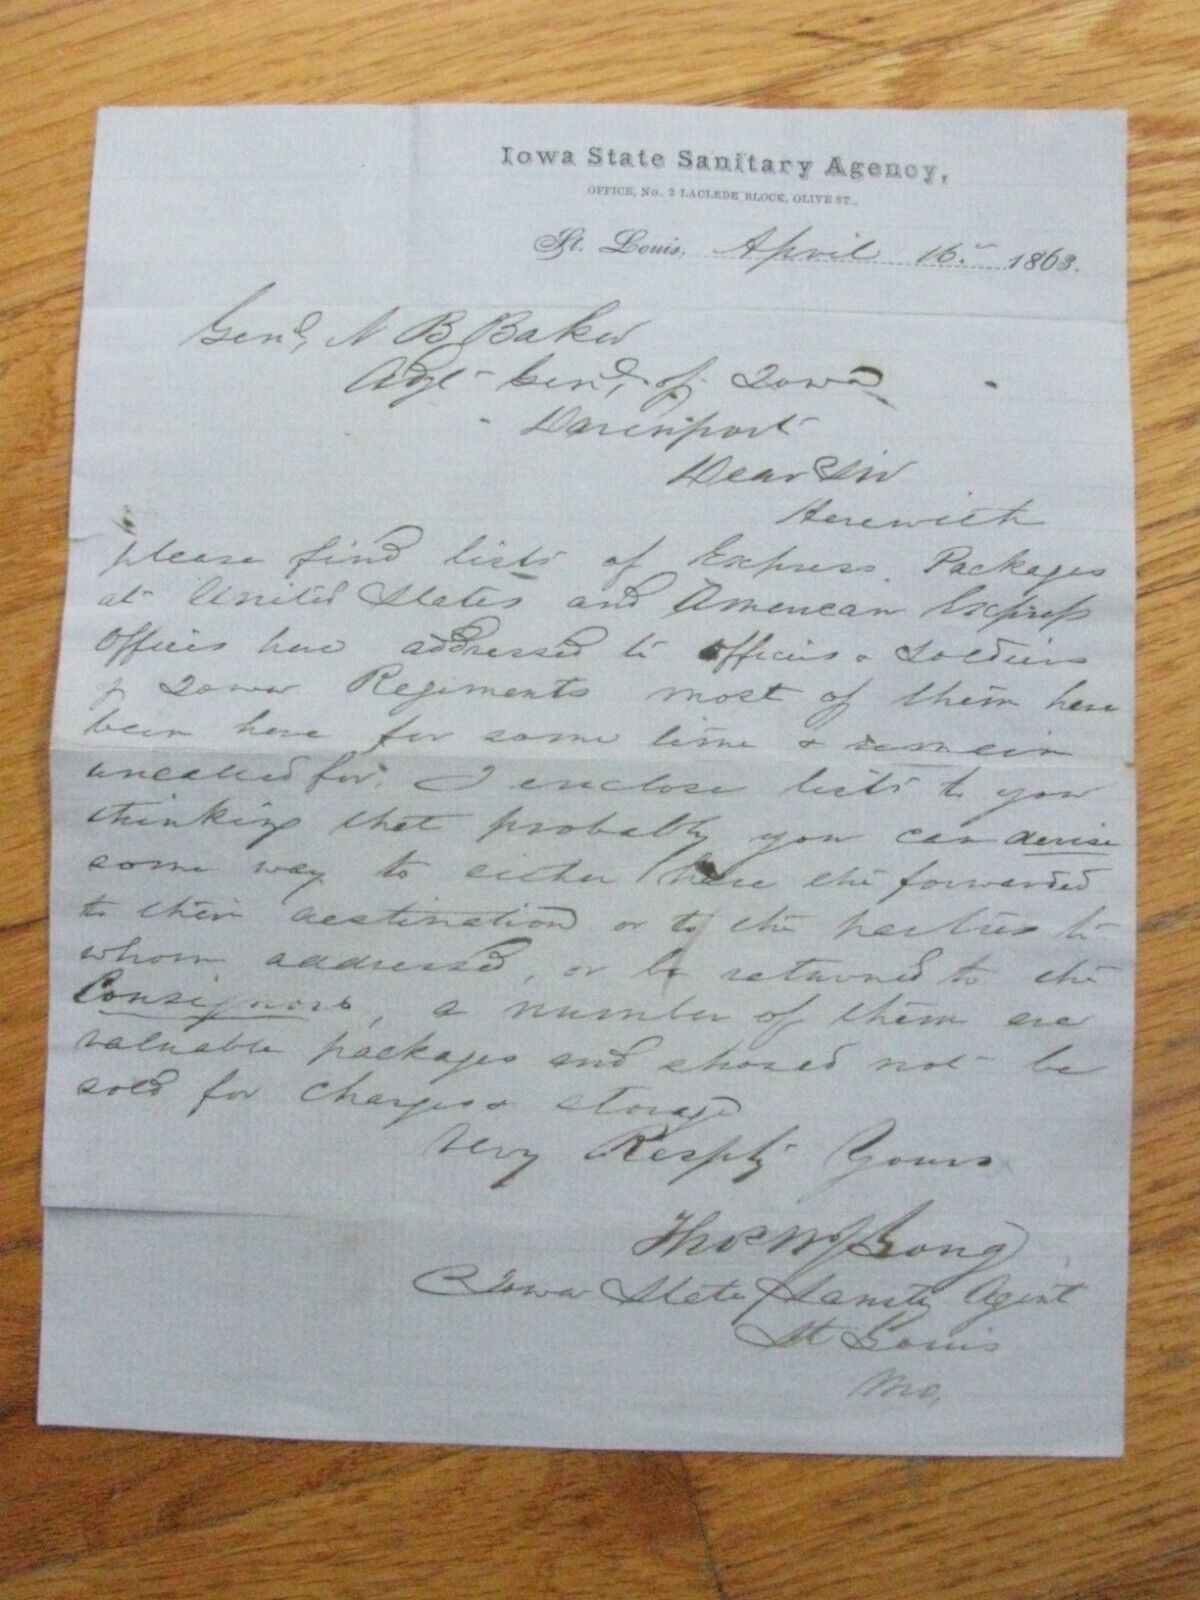 Iowa State Sanitary Agency,
OFFICE, No. 3 LACLEDE BLOCK, OLIVE ST.,
St. Louis, April 16. 1863.
Genl, N B Baker
Adgt Genl, of Iowa
Davenport
Dear Sir
Herewith
please find lists of Express Packages
at United States and American Express
Offices here addressed to officers & soldiers
of Iowa Regiments most of them have
been here for some time & remain
uncalled for. I enclose lists to you
thinking that probably you can devise
some way to either have the forwarded
to their destination or to the parties to
whom addressed, or be returned to the
Consignors, a number of them are
valuable packages and should not be
sold for charges & storage
Very Resptly Yours
Thos Long
Iowa State Sanity Agent
St Louis
Mo,